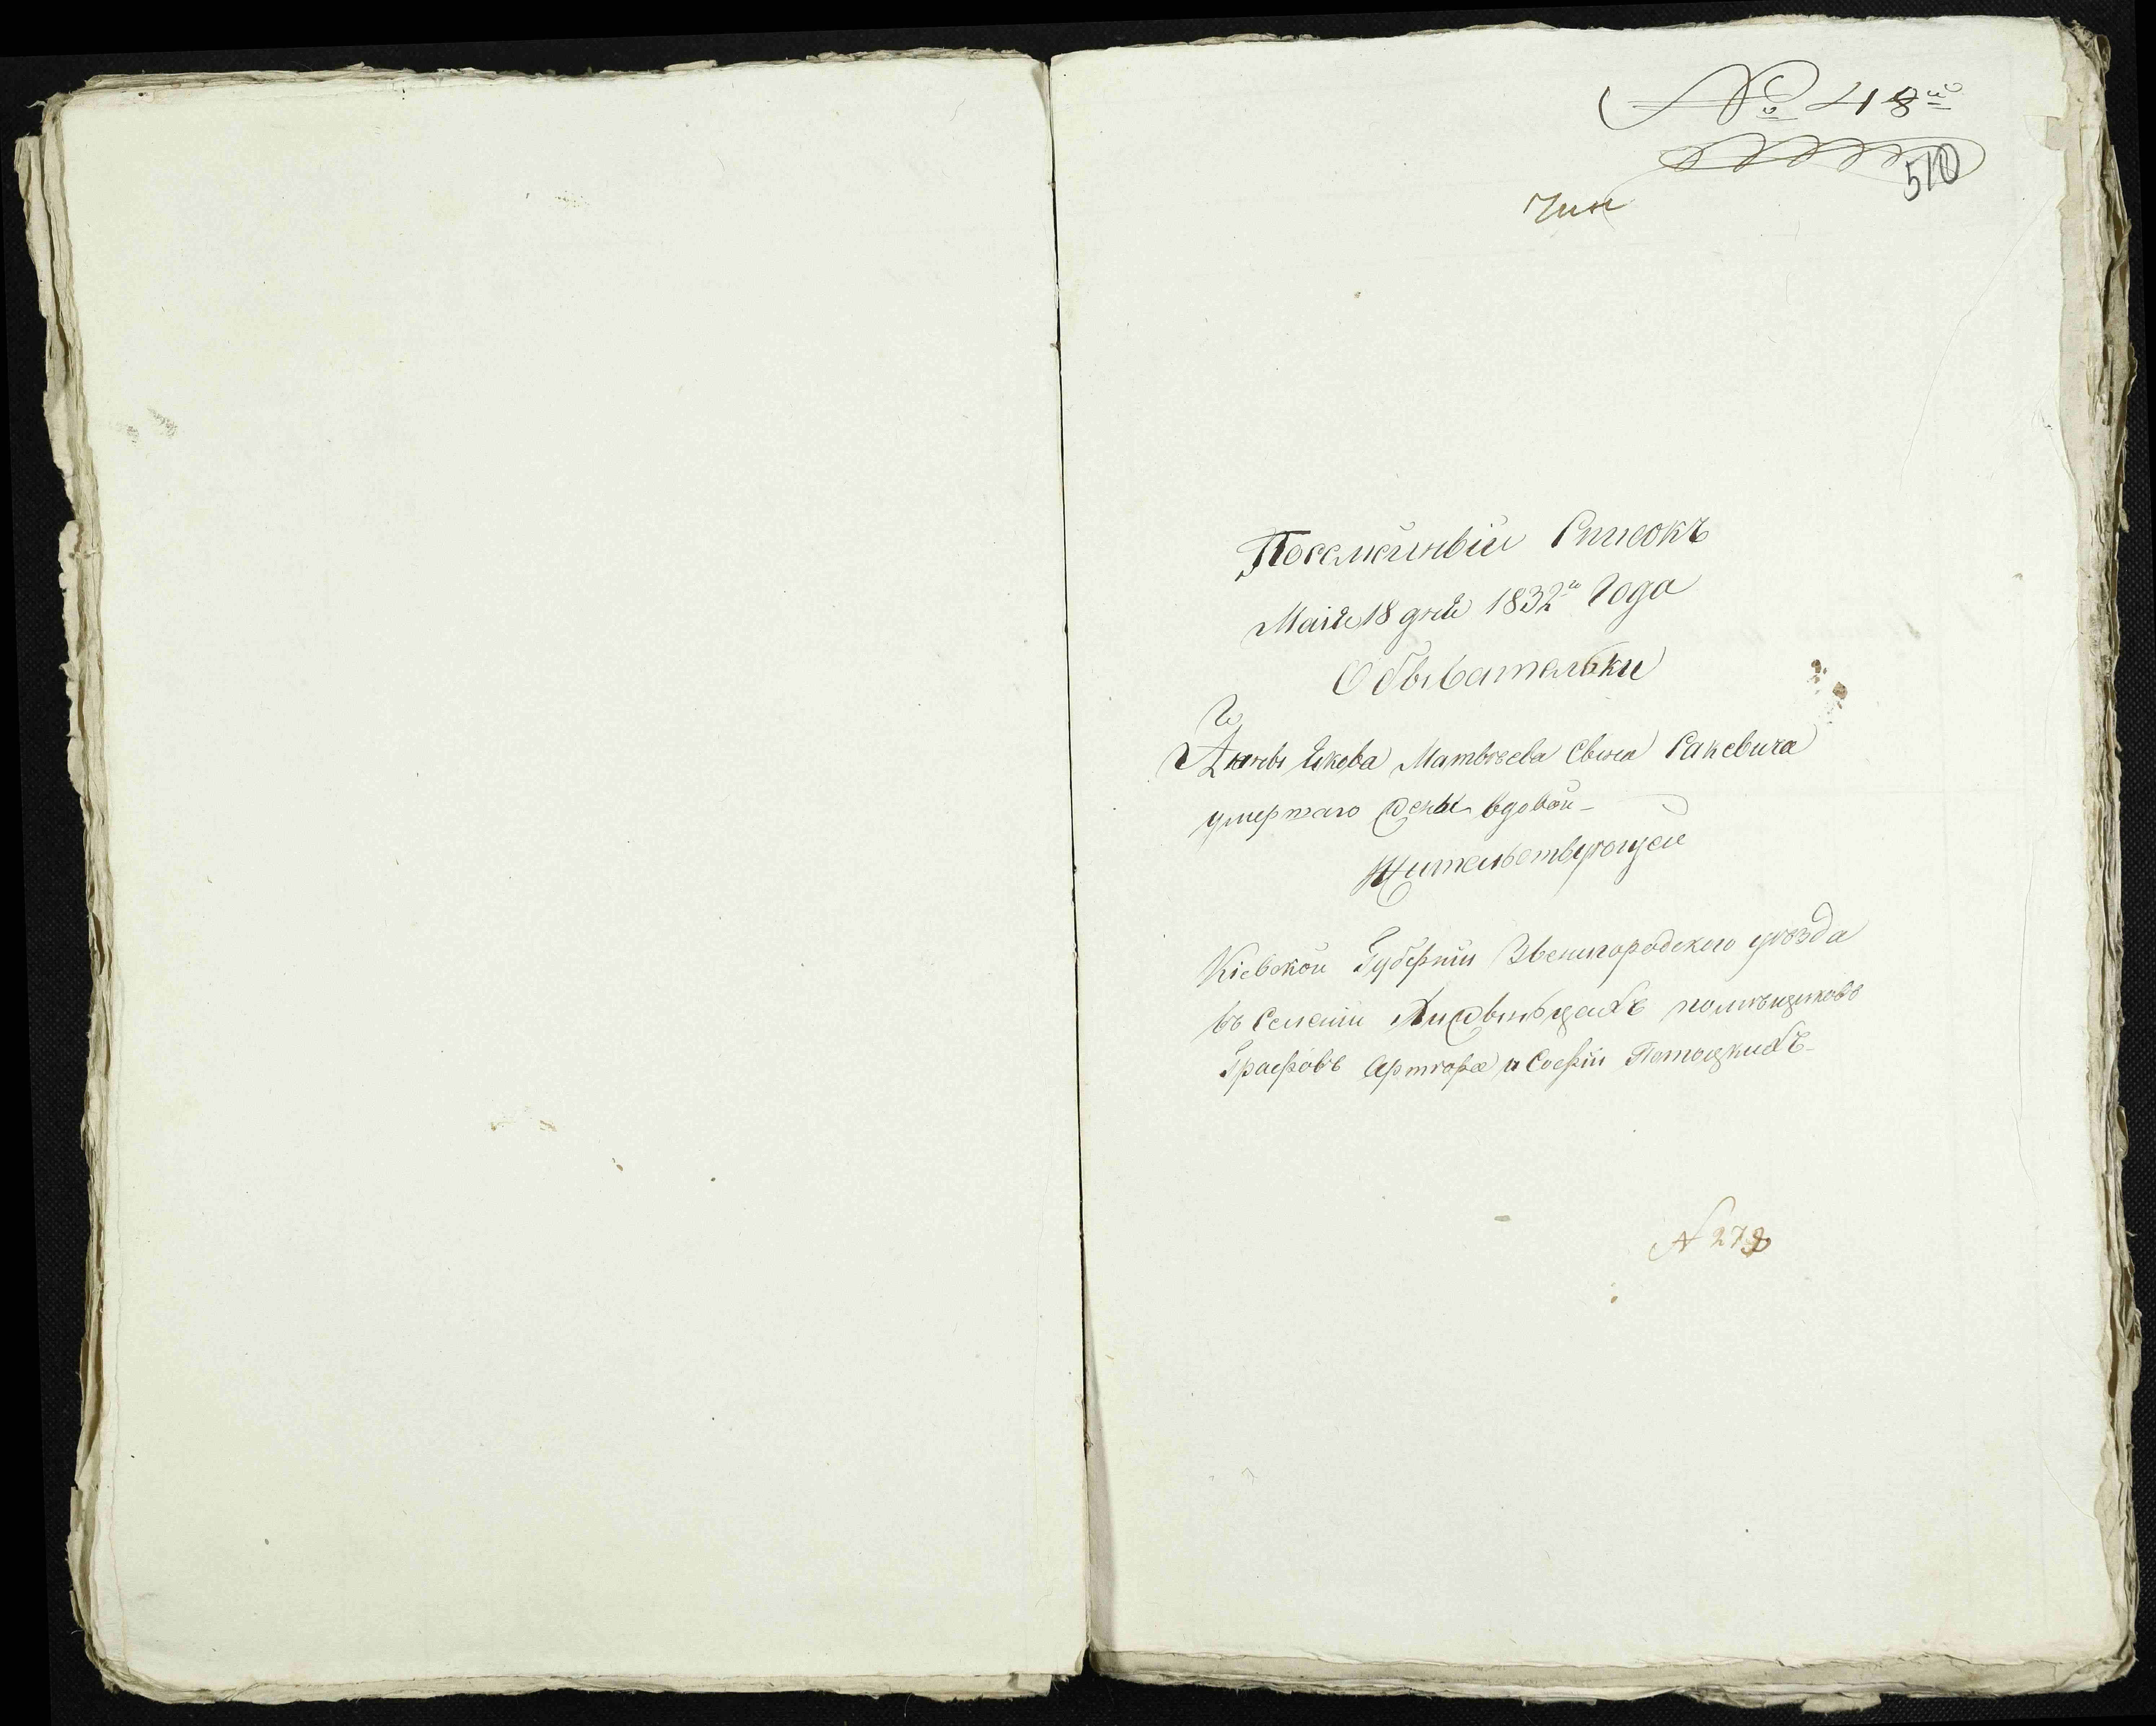 № 48го
510
Чин
Посемейный Списокъ
Маія 18 дня 1832го Года
Обывательки
Анны Якова Матвѣева Сына Ракевича
умершаго жены вдовой
Жительствующей
Кіевской Губерніи Звенигородского уѣзда
въ Селеніи помѣщиковъ
Графовъ Артюра и Софіи Потоцкихъ
N 279